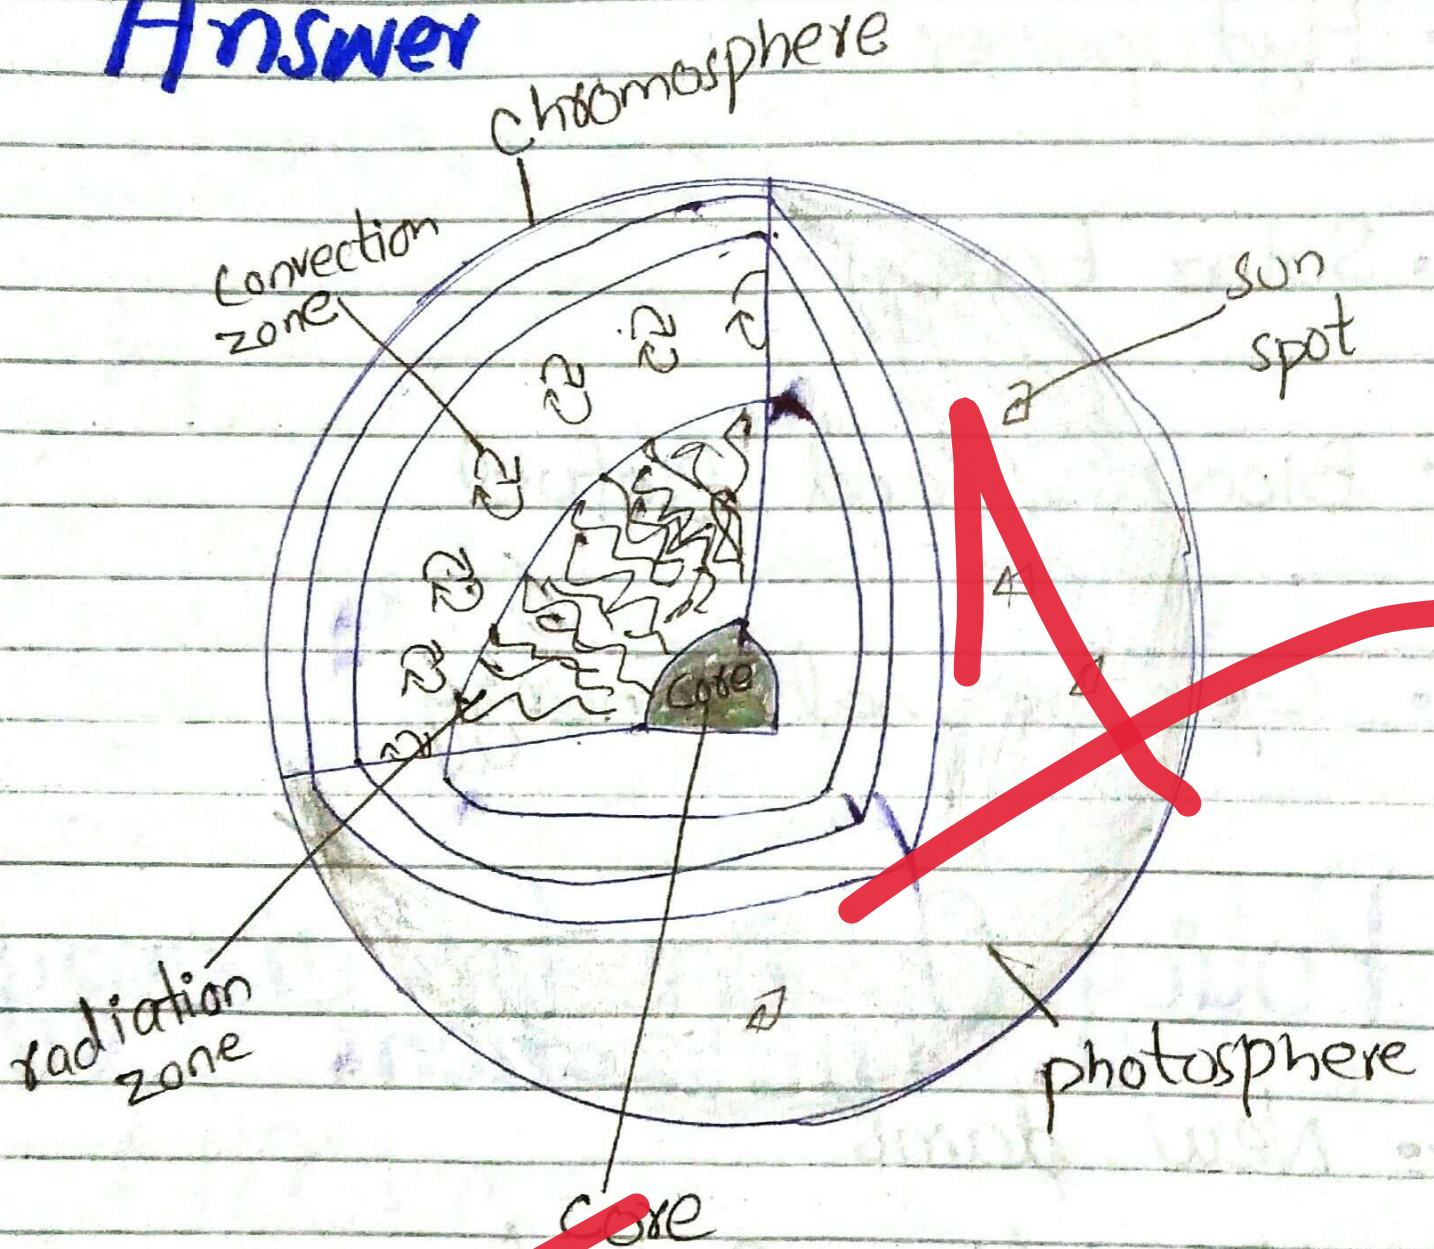 Answer
Chromosphere
convection
zone
sun
spot
Core
radiation
zone
photosphere
Core